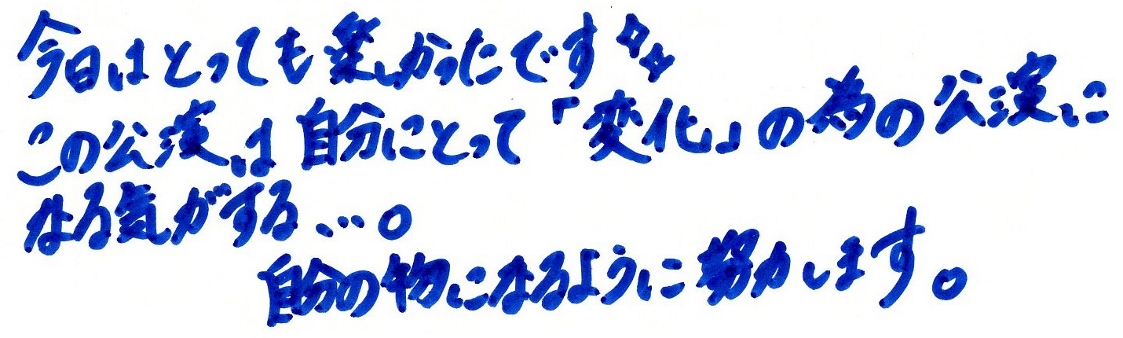 今日はとっても楽しかったです
この公演は自分にとって「変化」の為の公演に
なる気がする…。
自分の物になるように努力します。